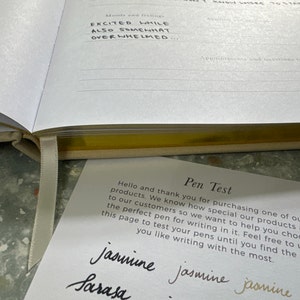 EXCITED WHILE
ALSO SOMEWHAT
OVERWHELMED
Pen Test
Hello and thank you for purchasing one of o
products. We know how special our products
to our customers so we want to help you choos
the perfect pen for writing in it. Feel free to u
this page to test your pens until you find the
you like writing with the most.
jasmine jasmine jasmine
Sarasa